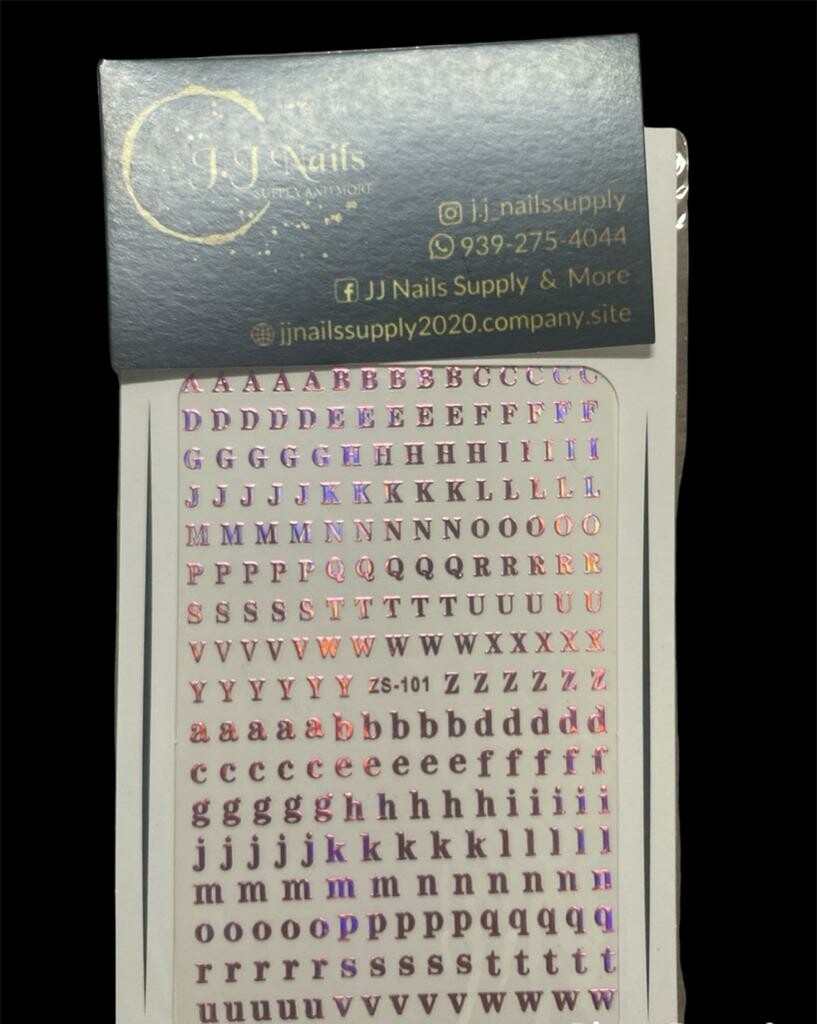 J.J Nails
SUPPLY AND MORE
j.j_nailssupply
939-275-4044
JJ Nails Supply & More
jjnailssupply2020.company.site
A A A A A B B B B B C C C C C
D D D D D E E E E E F F F F F
G G G G G H H H H H I I I I I
J J J J J K K K K K L L L L L
M M M M N N N N N O O O O O
P P P P P Q Q Q Q Q R R R R R
S S S S S T T T T T U U U U U
V V V V V W W W W W X X X X X
Y Y Y Y Y Y ZS-101 Z Z Z Z Z Z
a a a a a b b b b b d d d d d
c c c c c e e e e e f f f f f
g g g g g h h h h h i i i i i
j j j j j k k k k k l l l l l
m m m m m n n n n n n
o o o o o p p p p p q q q q q
r r r r r s s s s s t t t t t
u u u u u v v v v v w w w w